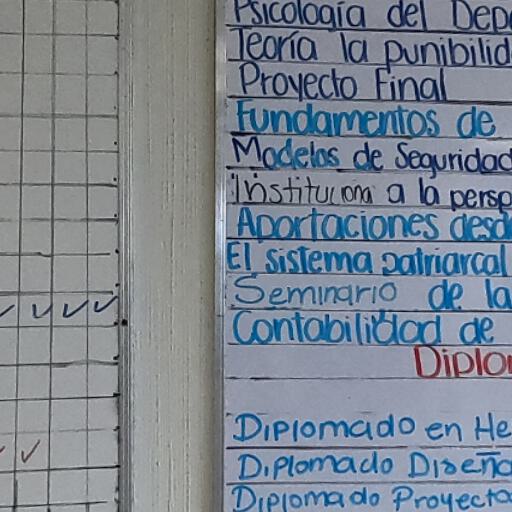 Psicología del Dep
Teoría la punibilid
Proyecto Final
Fundamentos de
Modelos de Seguridad
Instituciona a la persp
Aportaciones desd
El sistema patriarcal
Seminario de la
Contabilidad de
Diplo
Diplomado en He
Diplomado Diseño
Diplomado Proyecto